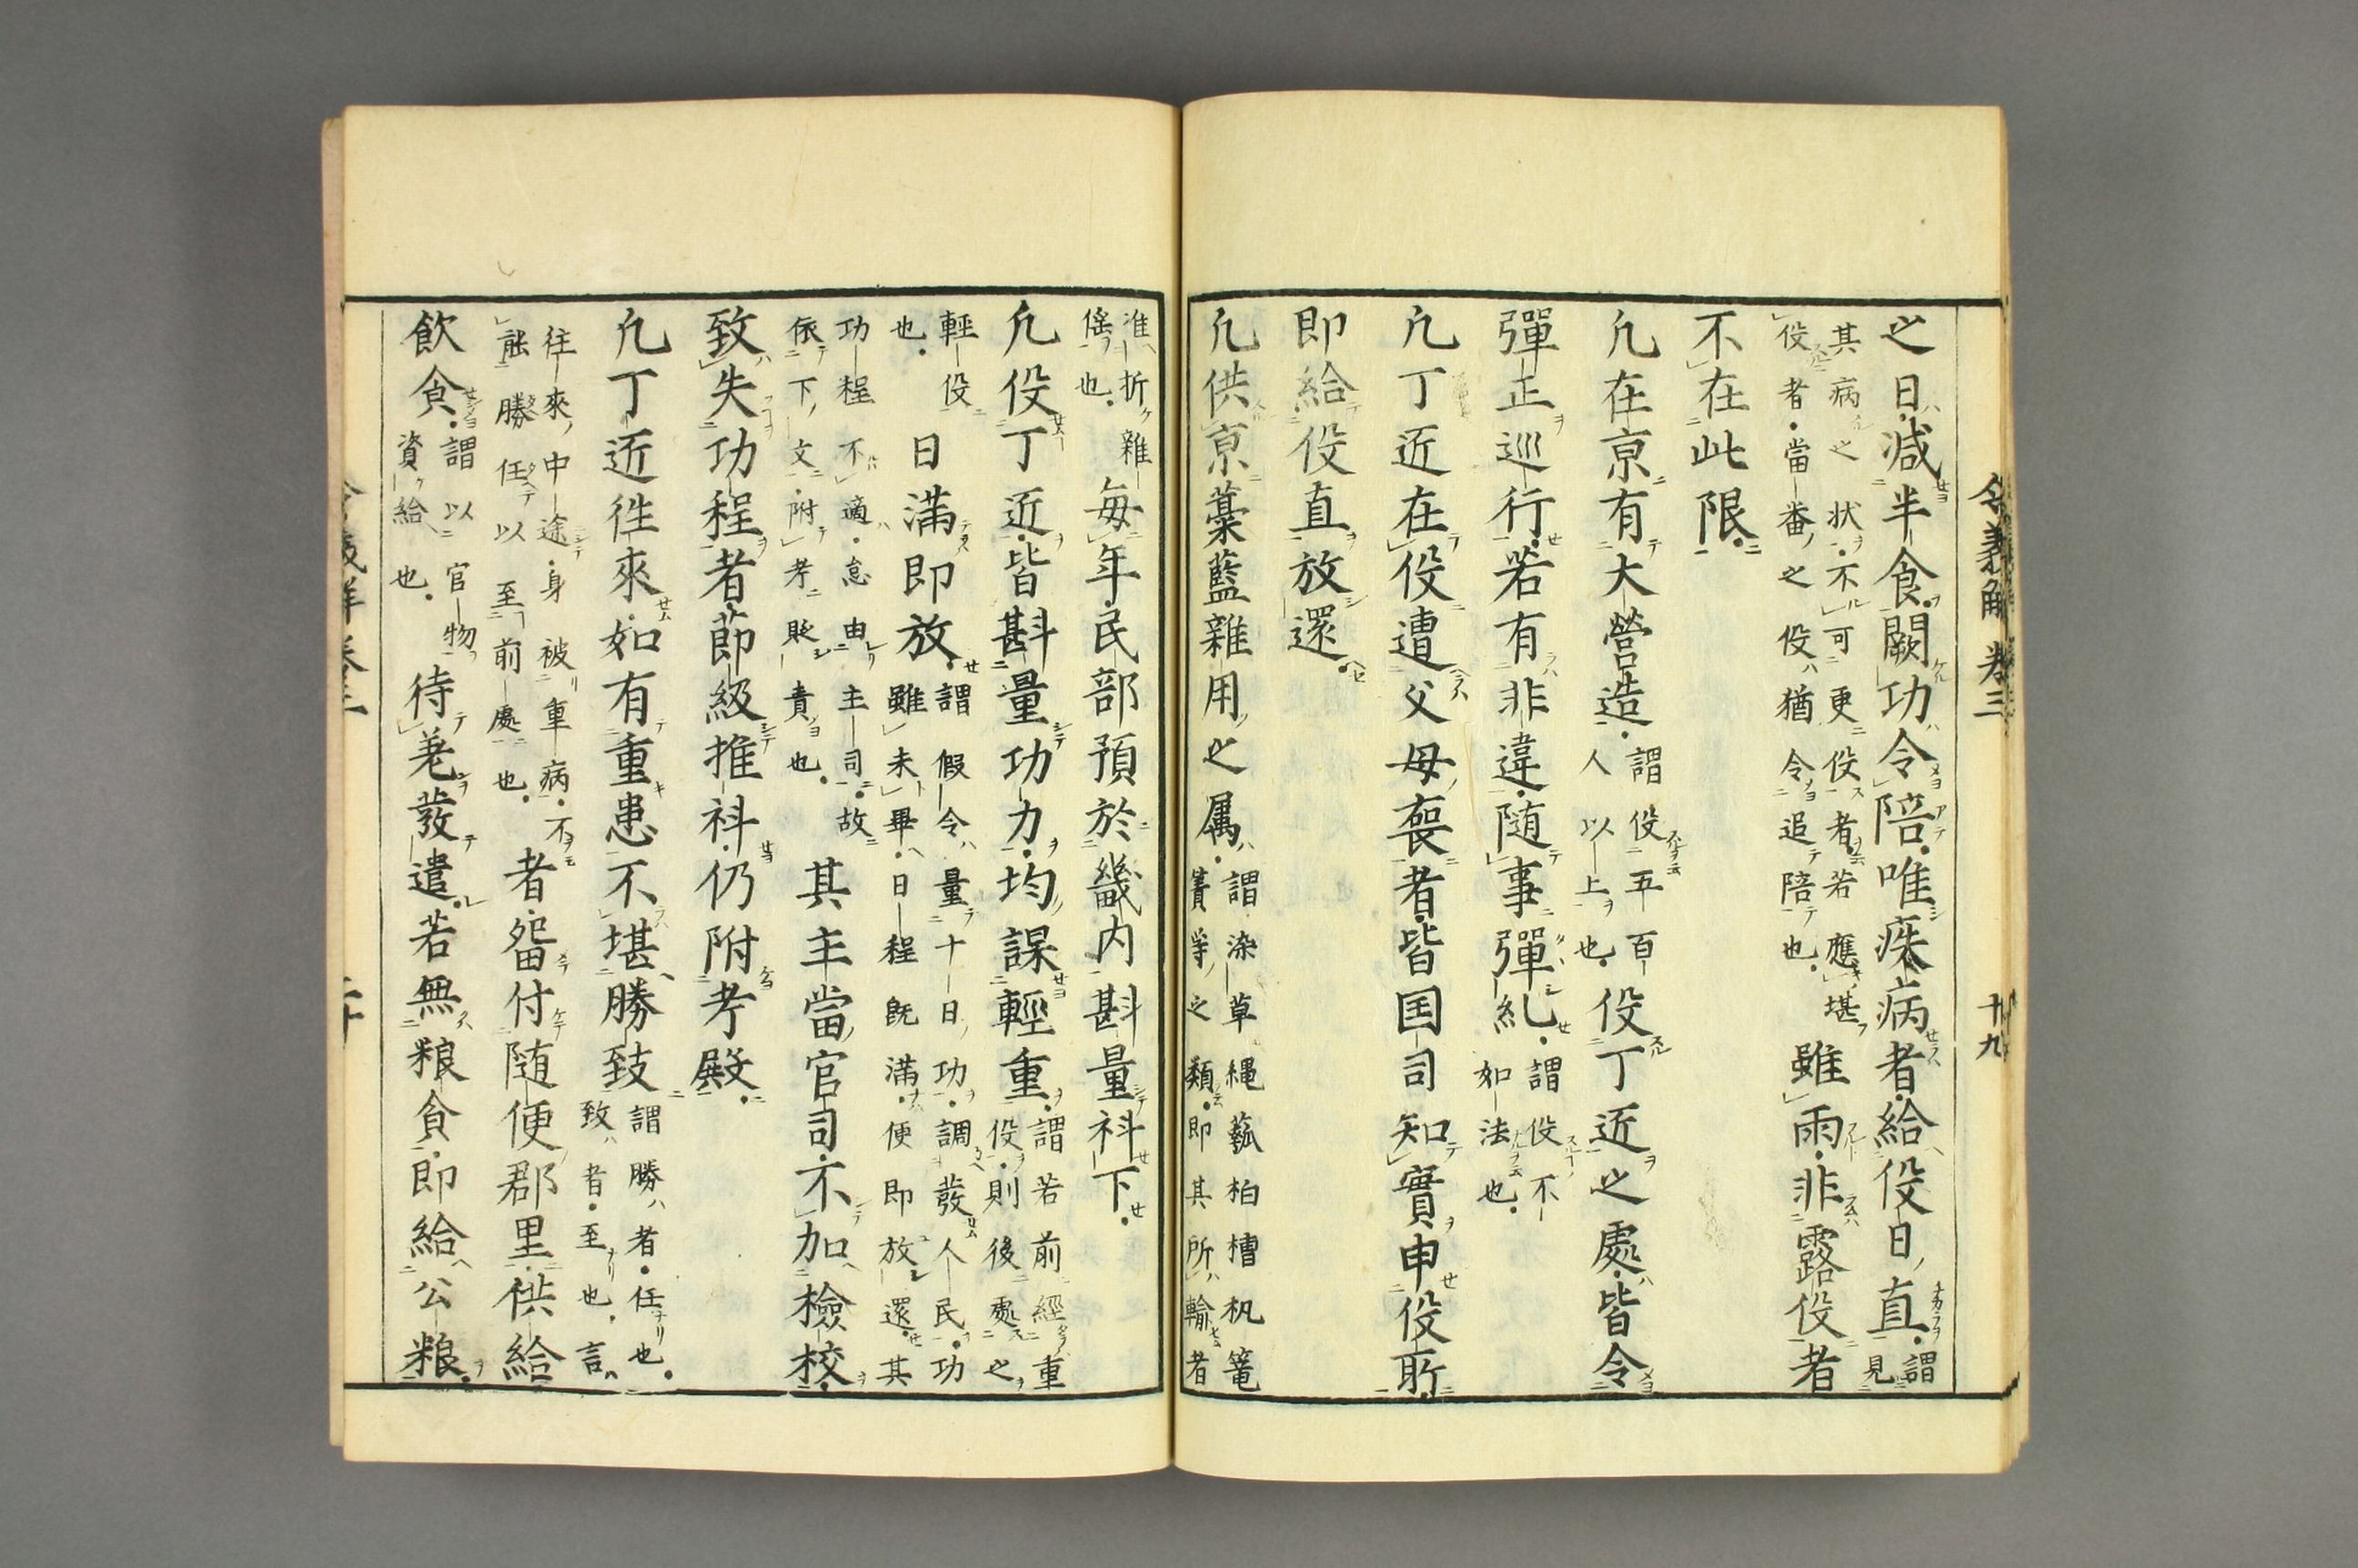 令義解 巻三
十九
之日减半食闕功令陪唯疾病者給役日直謂見
其病之状不可更役者若應堪
役者當番之役猶令追陪也
雖雨非露役者
不在此限
凢在京有大營造謂役五百
人以上也
役丁近之處皆令
彈正巡行若有非違随事彈糺謂役不
如法也
凢丁近在役遭父母喪者皆国司知實申役所
即給役直放還
凢供京藁藍雜用之属謂染草縄蓏柏槽杋篭
簀等之類即其所輸者
准折雜
徭也
毎年民部預於畿内斟量科下
凢役丁近皆斟量功力均課輕重謂若前經重
役則後處之
輕役
也
日滿即放謂假令量十日功調發人民功
雖未畢日程既滿便即放還其
功程不適怠由主司故
依下文附考貶責也
其主當官司不加檢校
致失功程者莭級推科仍附考殿
凢丁近徃來如有重患不堪勝致謂勝者任也
致者至也言
往來中途身被重病不
能勝任以至前處也
者留付随便郡里供給
飲食謂以官物
資給也
待差發遣若無粮食即給公粮